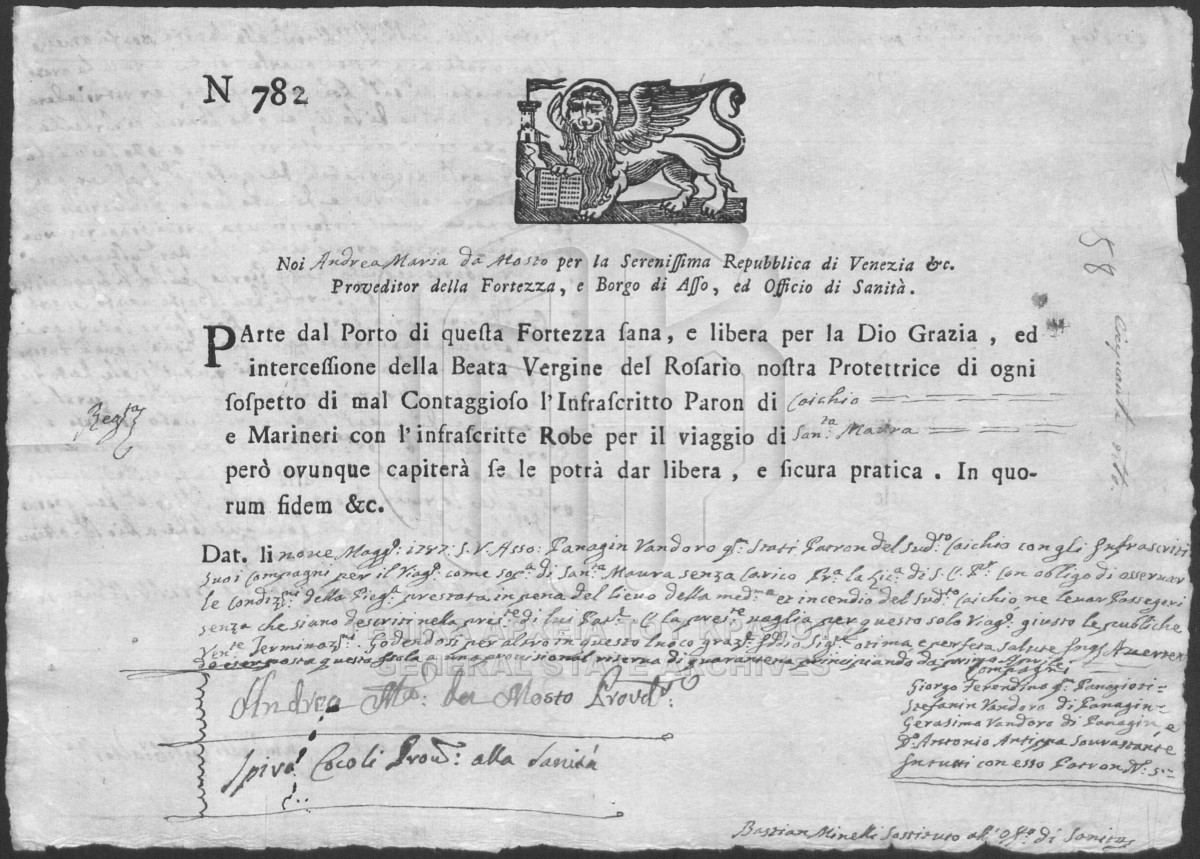 N 782
Noi Andrea Maria da Mosto per la Sereniſſima Repubblica di Venezia &c.
Proveditor della Fortezza, e Borgo di Aſſo, ed Officio di Sanità.
PArte dal Porto di queſta Fortezza ſana, e libera per la Dio Grazia, ed
interceſſione della Beata Vergine del Roſario noſtra Protettrice di ogni
ſoſpetto di mal Contaggioſo l'Infraſcritto Paron di Caichio
e Marineri con l'infraſcritte Robe per il viaggio di San.ta Maura
però ovunque capiterà ſe le potrà dar libera, e ſicura pratica. In quo-
rum fidem &c.
Regta
58
Dat. li nove Magg.o 1787: S.V. Asso: Panagin Vandoro q.m Stati Patron del sud.to Caichio con gli Infrascritti
suoi Compagni per il Viag.o come soc.a di San.ta Maura senza Carico con obligo di osservar
le Condiz.ni della Pieg.a prestata in pena del lievo della med.ma et incendio del Sud.to Caichio, ne levar Passegeri
senza che siano descritti nella pres.te vaglia per questo solo Viag.o giusto le publiche
Ven.te Terminaz.ni Godendosi per altro in questo luoco graz.e otima e perfeta salute
questa Isola a una provisional riserva di quarantena principiando da primo Aprile
Compagni
Giorgo Ferendino q.m Panagiori
Stefanin Vandoro di Panagin
Gerasimo Vandoro di Panagin, e
Antonio Antipa Sourastante
In tutti con esso Patron N.o 5
Andrea M.a da Mosto Provd.r
Spiro Cocoli Prov.r alla Sanità
Bastian Minelli Sostituto all' Off.o di Sanità
ГЕНЕРАЛЬНЫЙ
GENERAL STATE ARCHIVES